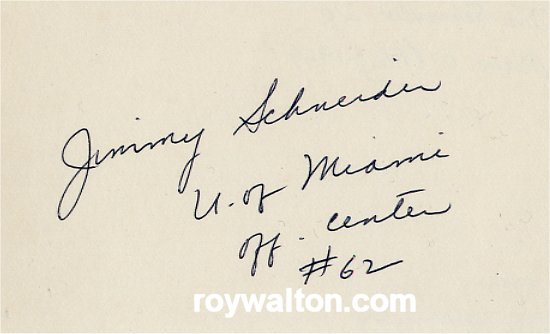 Jimmy Schneider
U. of Miami
off. center
#62
roywalton.com